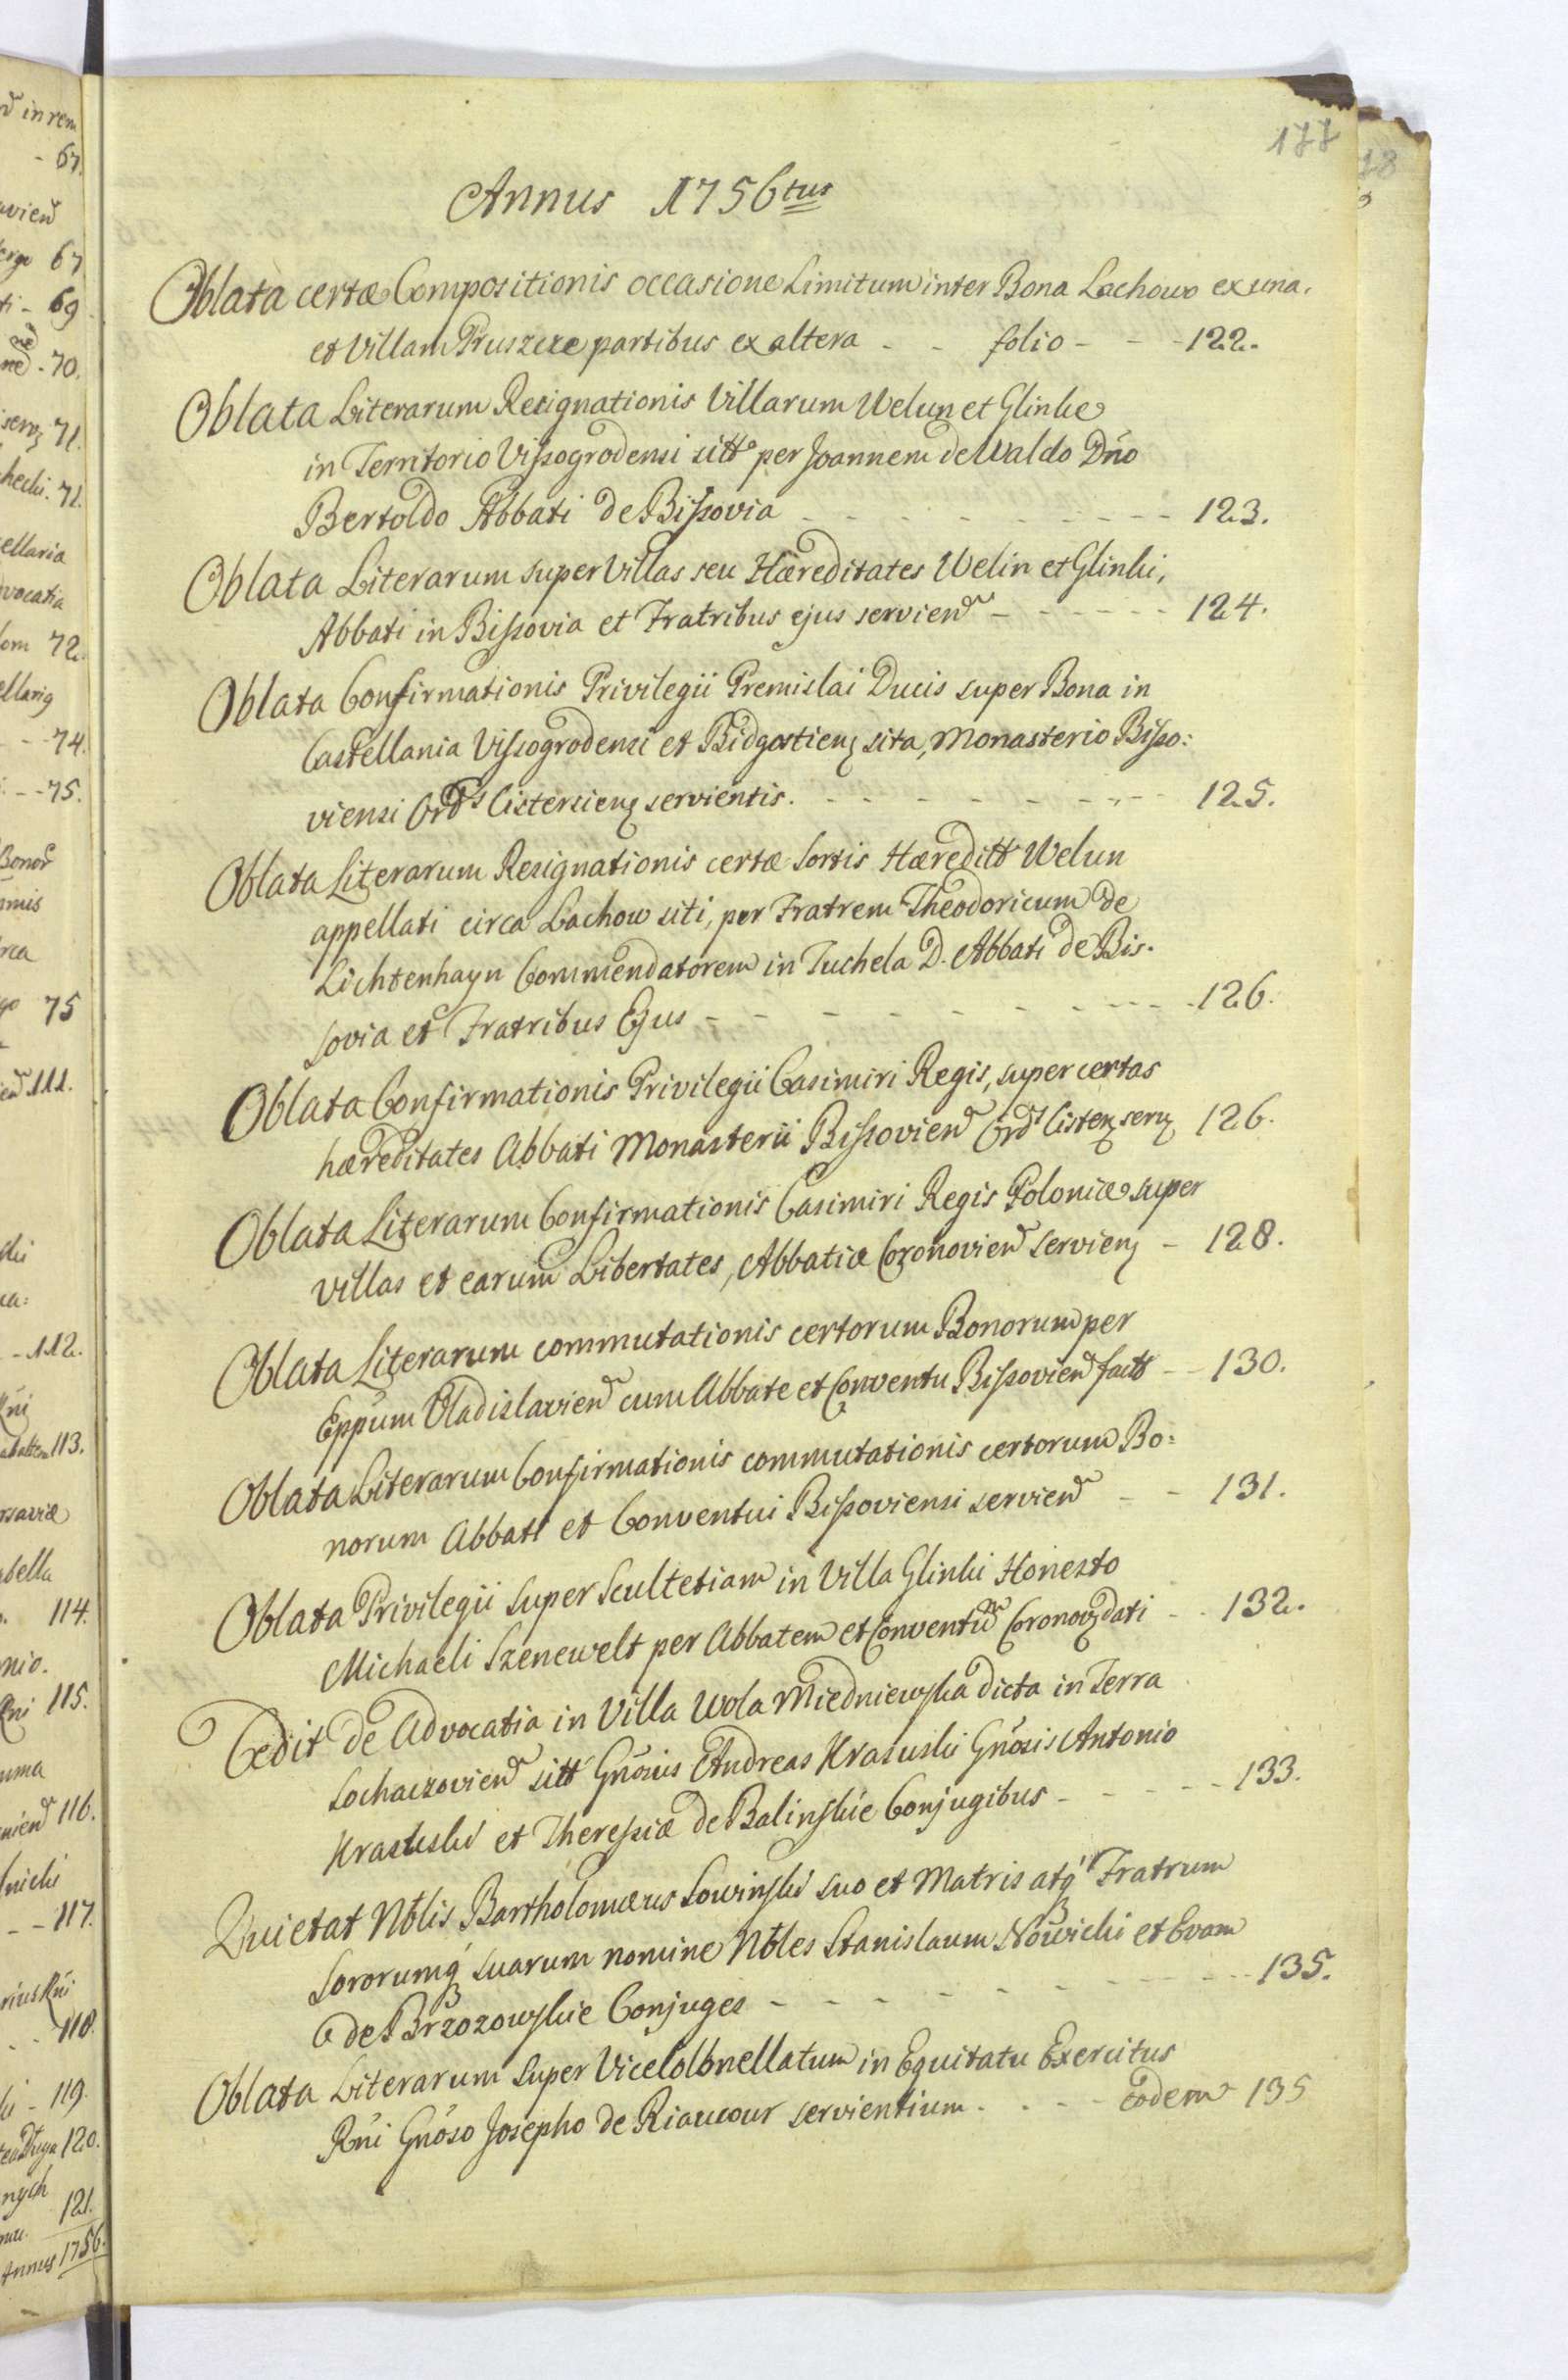 177
Annus 1756tus
Oblata certæ Compositionis occasione Limitum inter Bona Lachowo ex una,
et Villam Pruszcze partibus ex altera - - folio - - - 122.
Oblata Literarum Resignationis Villarum Welun et Glinke
in Territorio Vissogrodensi sitt per Joannem de Waldo Dño
Bertoldo Abbati de Bissovia - - - - - - - - - 123.
Oblata Literarum super Villas seu Hæreditates Welin et Glinki,
Abbati in Bissovia et Fratribus ejus servien - - - - - - 124.
Oblata Confirmationis Privilegii Premislai Ducis super Bona in
Castellania Vissogrodensi et Bidgostien sita, Monasterio Bisso:
viensi Ordis Cistersien servientis. - - - - - - - - 125.
Oblata Literarum Resignationis certæ Sortis Hæreditt Welun
appellati circa Lachow siti, per Fratrem Theodoricum de
Lichtenhayn Commendatorem in Tuchela D. Abbati de Bis-
sovia et Fratribus Ejus - - - - - - - - - 126.
Oblata Confirmationis Privilegii Casimiri Regis, super certas
hæreditates Abbati Monasterii Bissovien Ordis Cister serv 126.
Oblata Literarum Confirmationis Casimiri Regis Poloniæ super
villas et earum Libertates, Abbatiæ Coronovien servien - 128.
Oblata Literarum commutationis certorum Bonorum per
Eppum Vladislavien cum Abbate et Conventu Bissovien fact - - 130.
Oblata Literarum Confirmationis commutationis certorum Bo:
norum Abbati et Conventui Bissoviensi servien - - 131.
Oblata Privilegii super Scultetiam in Villa Glinki Honesto
Michaeli Szenewelt per Abbatem et Conventum Coronov dati - - 132.
Cedit de Advocatia in Villa Wola Miedniewska dicta in Terra
Sochaczovien sitt Gñosus Andreas Krasuski Gñosis Antonio
Krasuski et Theressiæ de Balinskie Conjugibus - - - - - 133.
Quietat Nblis Bartholomæus Lowinski suo et Matris atq Fratrum
Sororumq suarum nomine Nbles Stanislaum Nowicki et Evam
de Brzozowskie Conjuges - - - - - - - - - 135.
Oblata Literarum super Vicecolonellatum in Equitatu Exercitus
Rñi Gñoso Josepho de Riaucour servientium. - - - - eodem 135